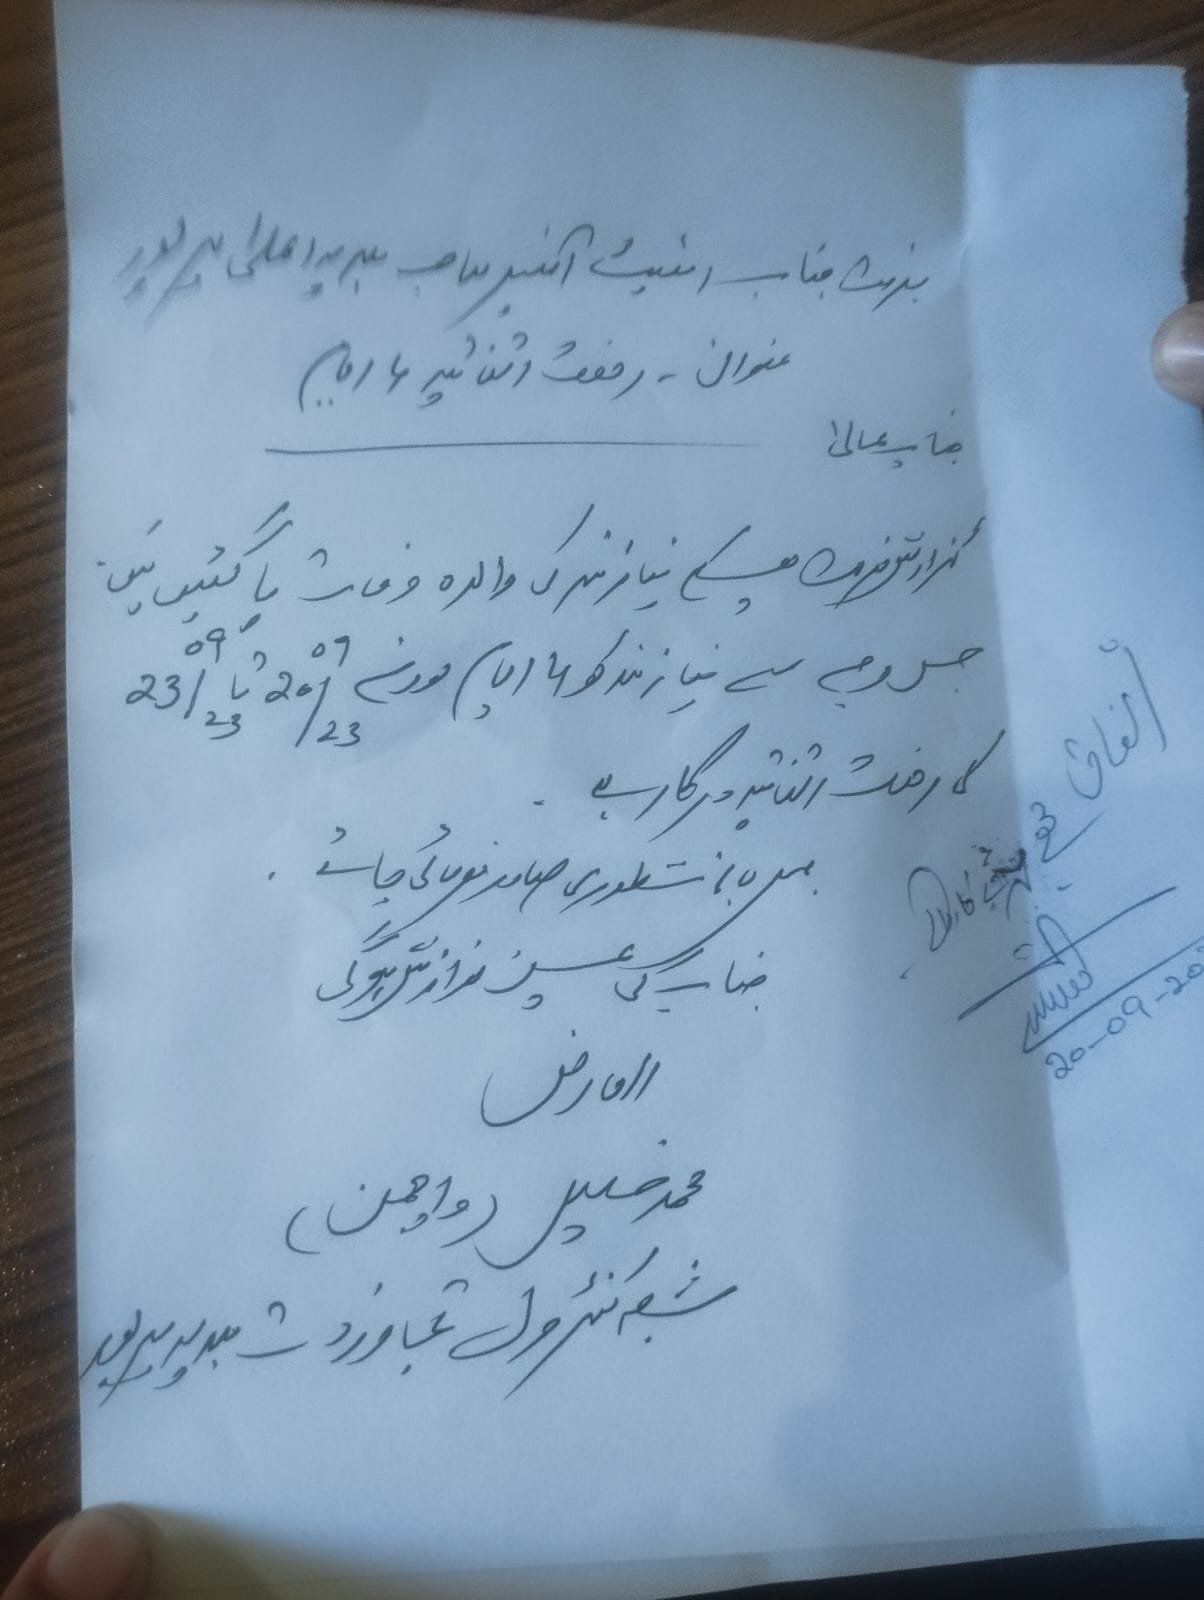 بخدمت جناب اسٹیٹ آفیسر صاحب بلدیہ اعلیٰ میرپور
عنوان - رخصت اتفاقیہ ۴ ایام
جناب عالی!
گزارش خدمت ہیکہ نیازمند کی والدہ وفات پا گئیں ہیں۔
جس وجہ سے نیازمند کو ۴ ایام مورخہ 20/09/23 تا 23/09/23
کی رخصت اتفاقیہ درکار ہے۔
منظوری صادر فرمائی جائے۔
جناب کی عین نوازش ہوگی
العارض
محمد خلیل (واچمین)
شعبہ کنٹرول تجاوزات بلدیہ میرپور
اتفاق
20-09-20